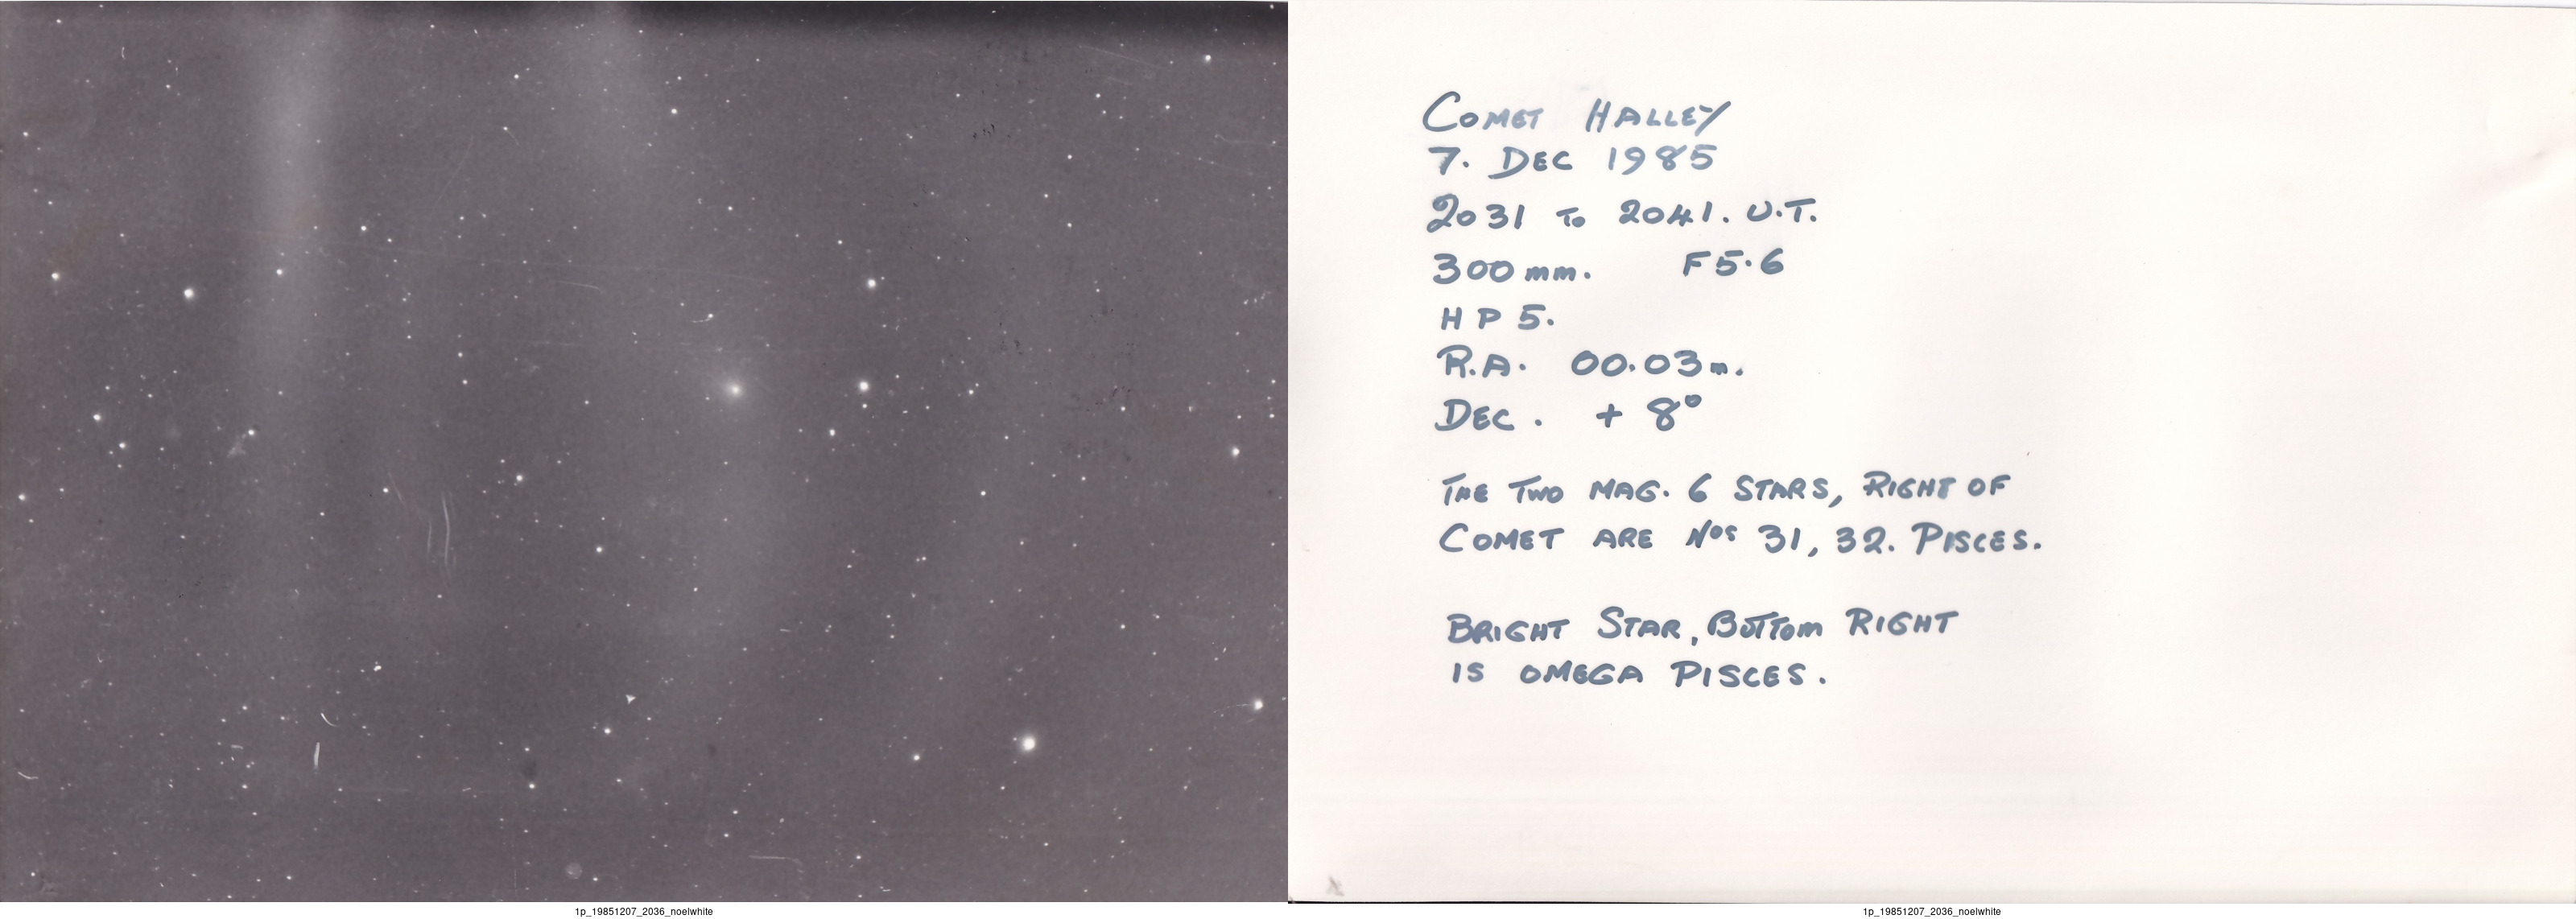 COMET HALLEY
7. DEC 1985
2031 To 2041. U.T.
300 mm. F5.6
HP5.
R.A. 00.03m.
DEC. + 8°
THE TWO MAG. 6 STARS, RIGHT OF
COMET ARE Nos 31, 32. PISCES.
BRIGHT STAR, BOTTOM RIGHT
IS OMEGA PISCES.
1p_19851207_2036_noelwhite
1p_19851207_2036_noelwhite